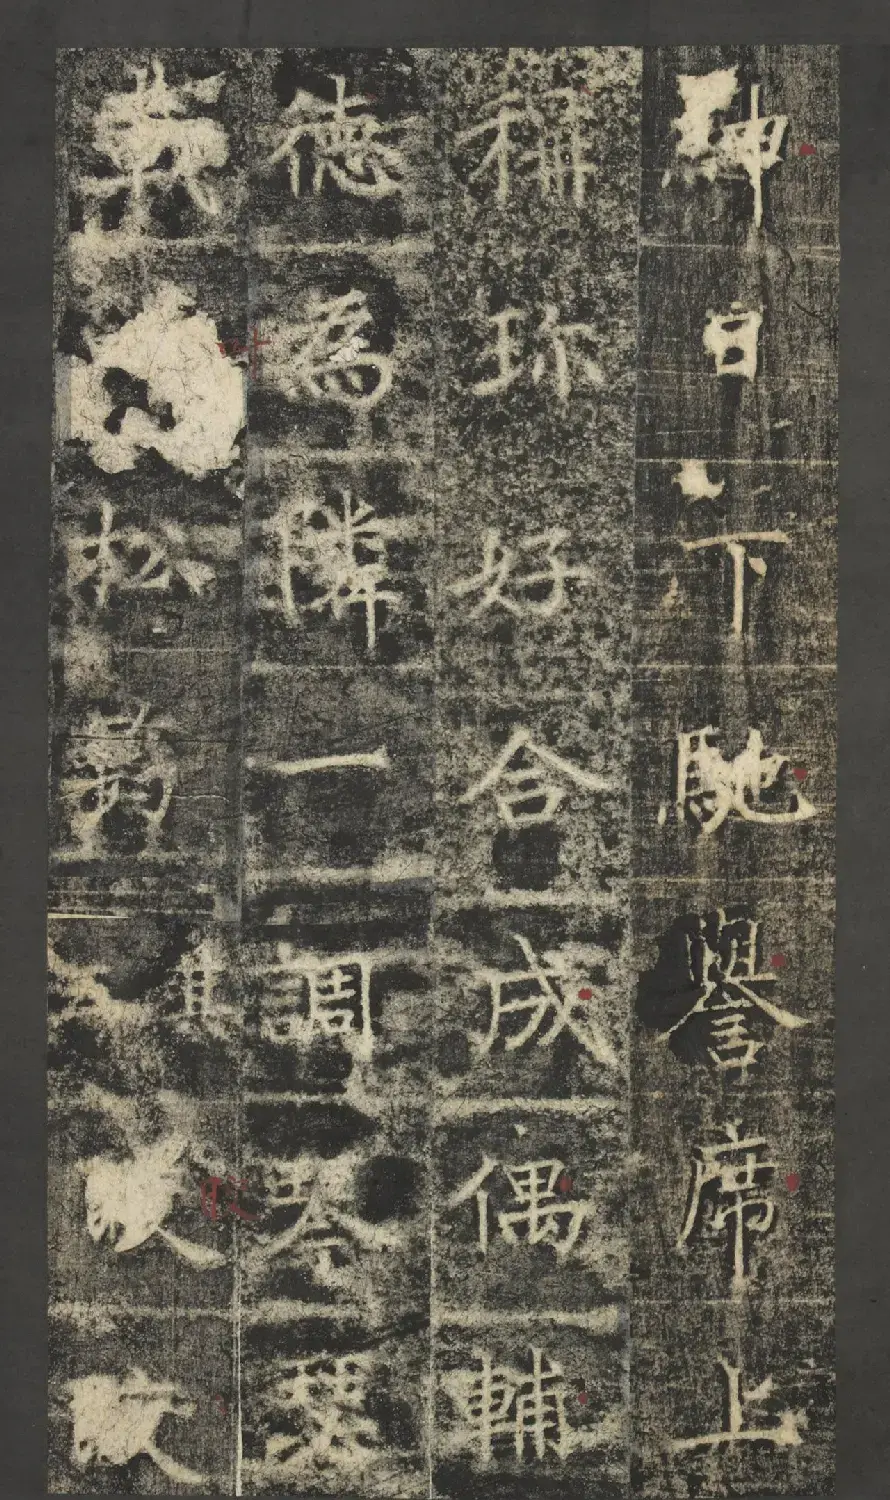 紳日下馳譽席上
稱珎好合成偶輔
德為隣一調琴瑟
松皎皎